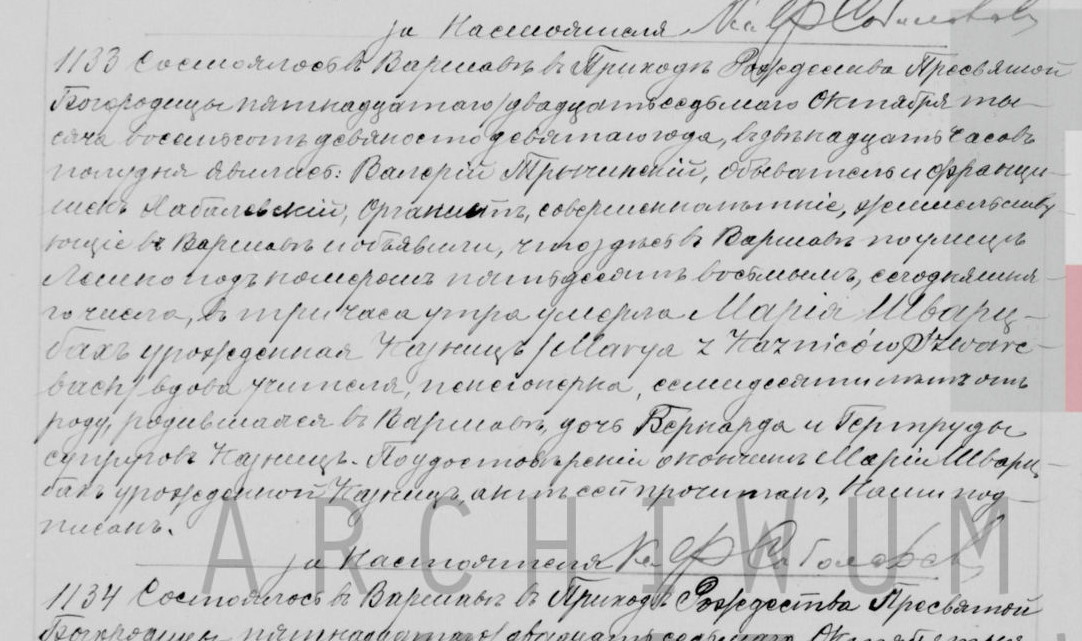 за Настоятеля Кс. Ф Соболевск
1133 Состоялось въ Варшавѣ въ Приходѣ Рождества Пресвятой
Богородицы пятнадцатаго/двадцать седьмаго Октября ты-
сяча восемьсотъ девяносто девятаго года, въ двѣнадцать часовъ
полудня явились: Валерій Трычинскій, обыватель и Франци-
шекъ Хабалевскій, органистъ, совершеннолѣтніе, жительству-
ющіе въ Варшавѣ и объявили, что здѣсь въ Варшавѣ по улицѣ
Лешно подъ номеромъ пятьдесятъ восьмымъ, сегодняшня-
го числа, въ три часа утра умерла Марія Шварц-
бахъ урожденная Казницъ /Marya z Kazniców Szwarc-
bach/ вдова учителя, пенсіонерка, семидесяти лѣтъ отъ
роду, родившаяся въ Варшавѣ, дочь Бернарда и Гертруды
супруговъ Казницъ. По удостовѣреніи о кончинѣ Маріи Шварц-
бахъ урожденной Казницъ, актъ сей прочитанъ, Нами под-
писанъ.
за Настоятеля Кс. Ф Соболевск
ARCHIWUM
1134 Состоялось въ Варшавѣ въ Приходѣ Рождества Пресвятой
Богородицы пятнадцатаго/двадцать седьмаго Октября